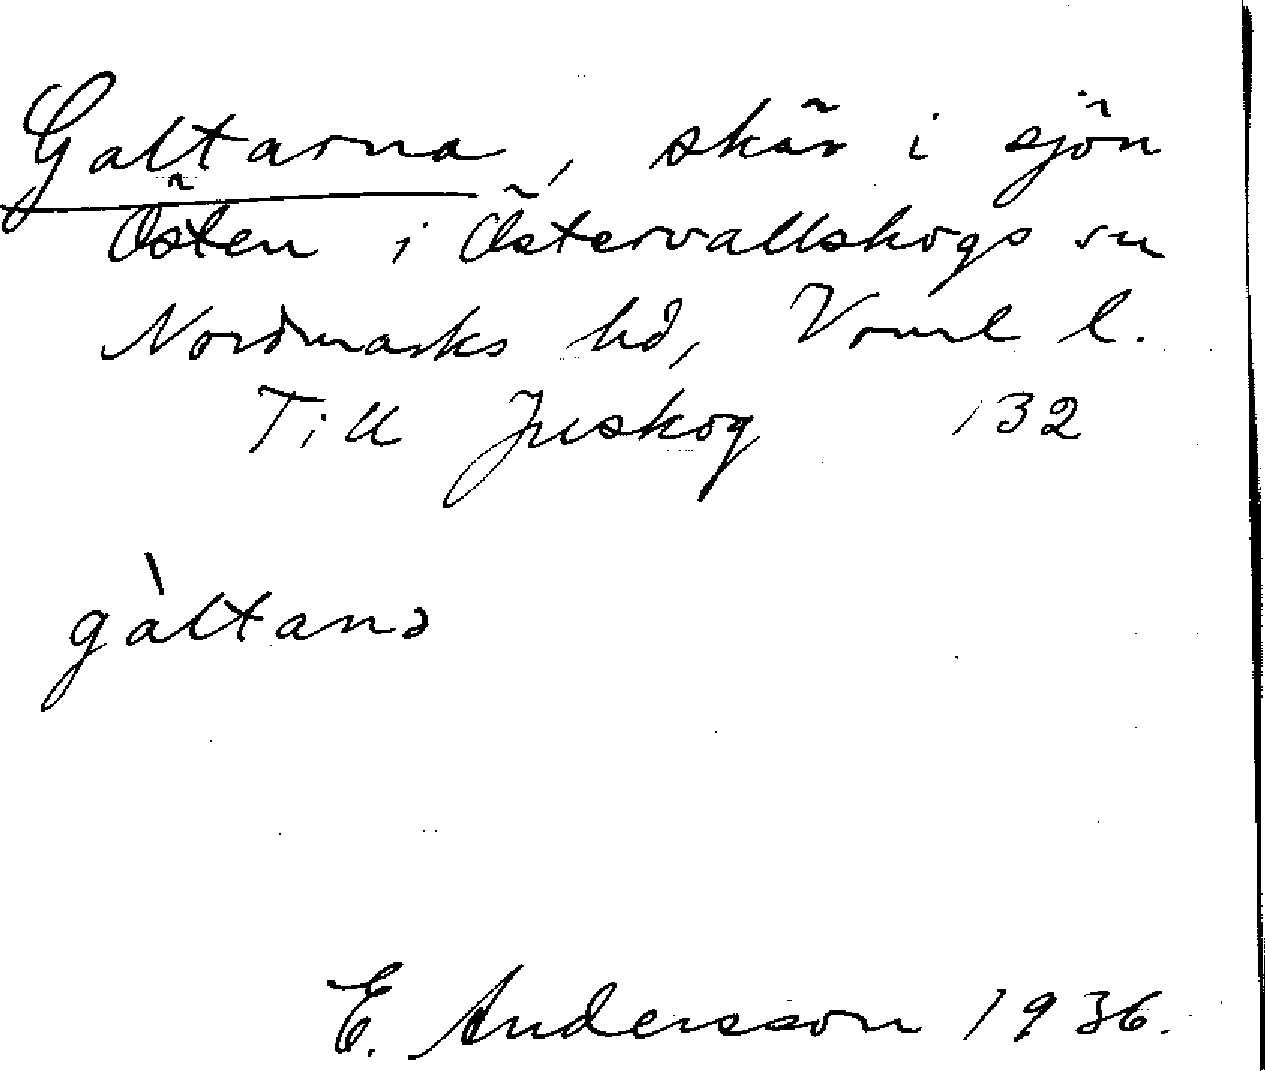 Galtarna, skär i sjön
Östen i Östervallskogs sn
Nordmarks hd, Vrml l.
Till Juskog 132
gàltanə
E. Andersson 1936.